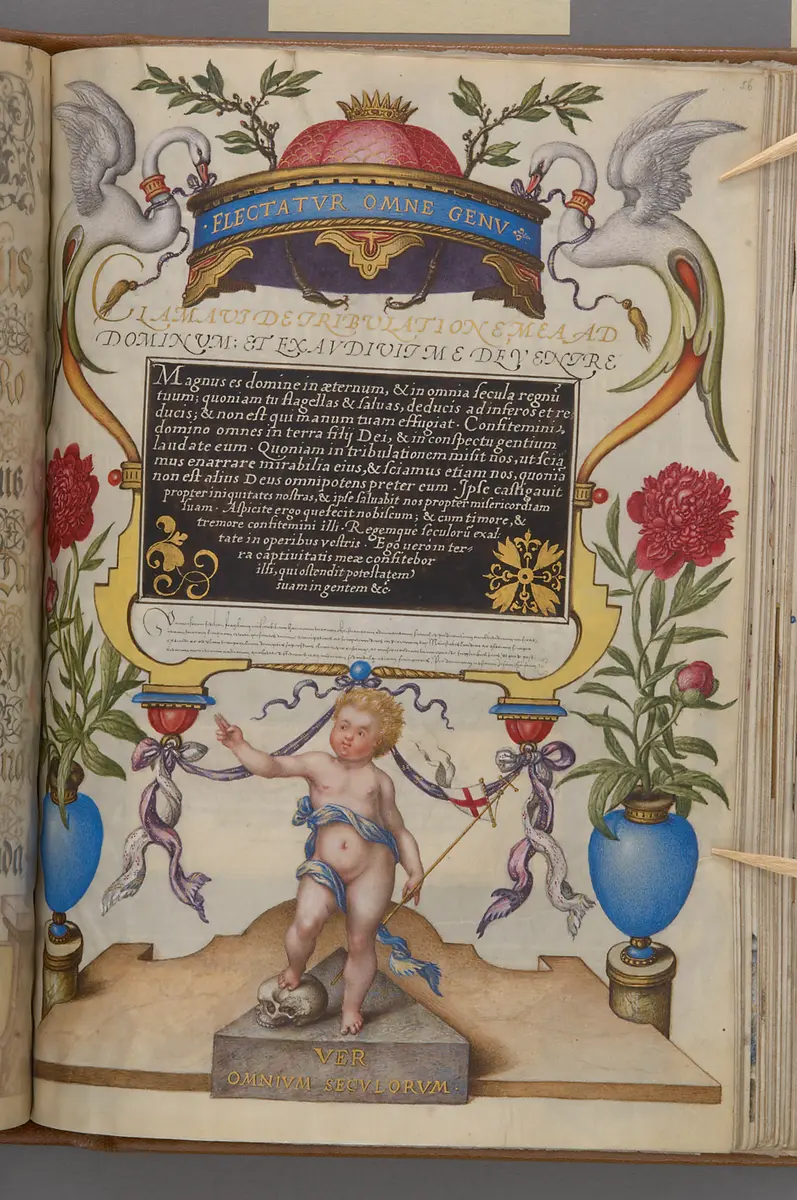 56
· FLECTATVR OMNE GENV
CLAMAVI DE TRIBVLATIONE MEA AD
DOMINVM: ET EXAVDIVIT ME DE VENTRE
Magnus es domine in æternum, & in omnia secula regnũ
tuum; quoniam tu flagellas & saluas, deducis ad inferos et re
ducis; & non est qui manum tuam effugiat. Confitemini,
domino omnes in terra filij Dei, & in conspectu gentium
laudate eum. Quoniam in tribulationem misit nos, ut sciã
mus enarrare mirabilia eius, & sciamus etiam nos, quoniã
non est alius Deus omnipotens preter eum. Ipse castigauit
propter iniquitates nostras, & ipse saluabit nos propter misericordiam
suam. Aspicite ergo que fecit nobiscum; & cum timore, &
tremore confitemini illi. Regemque seculorũ exal:
tate in operibus vestris. Ego uero in ter=
ra captiuitatis meæ confitebor
illi; qui ostendit potestatem
suam in gentem &c.
VER
OMNIVM SECVLORVM.